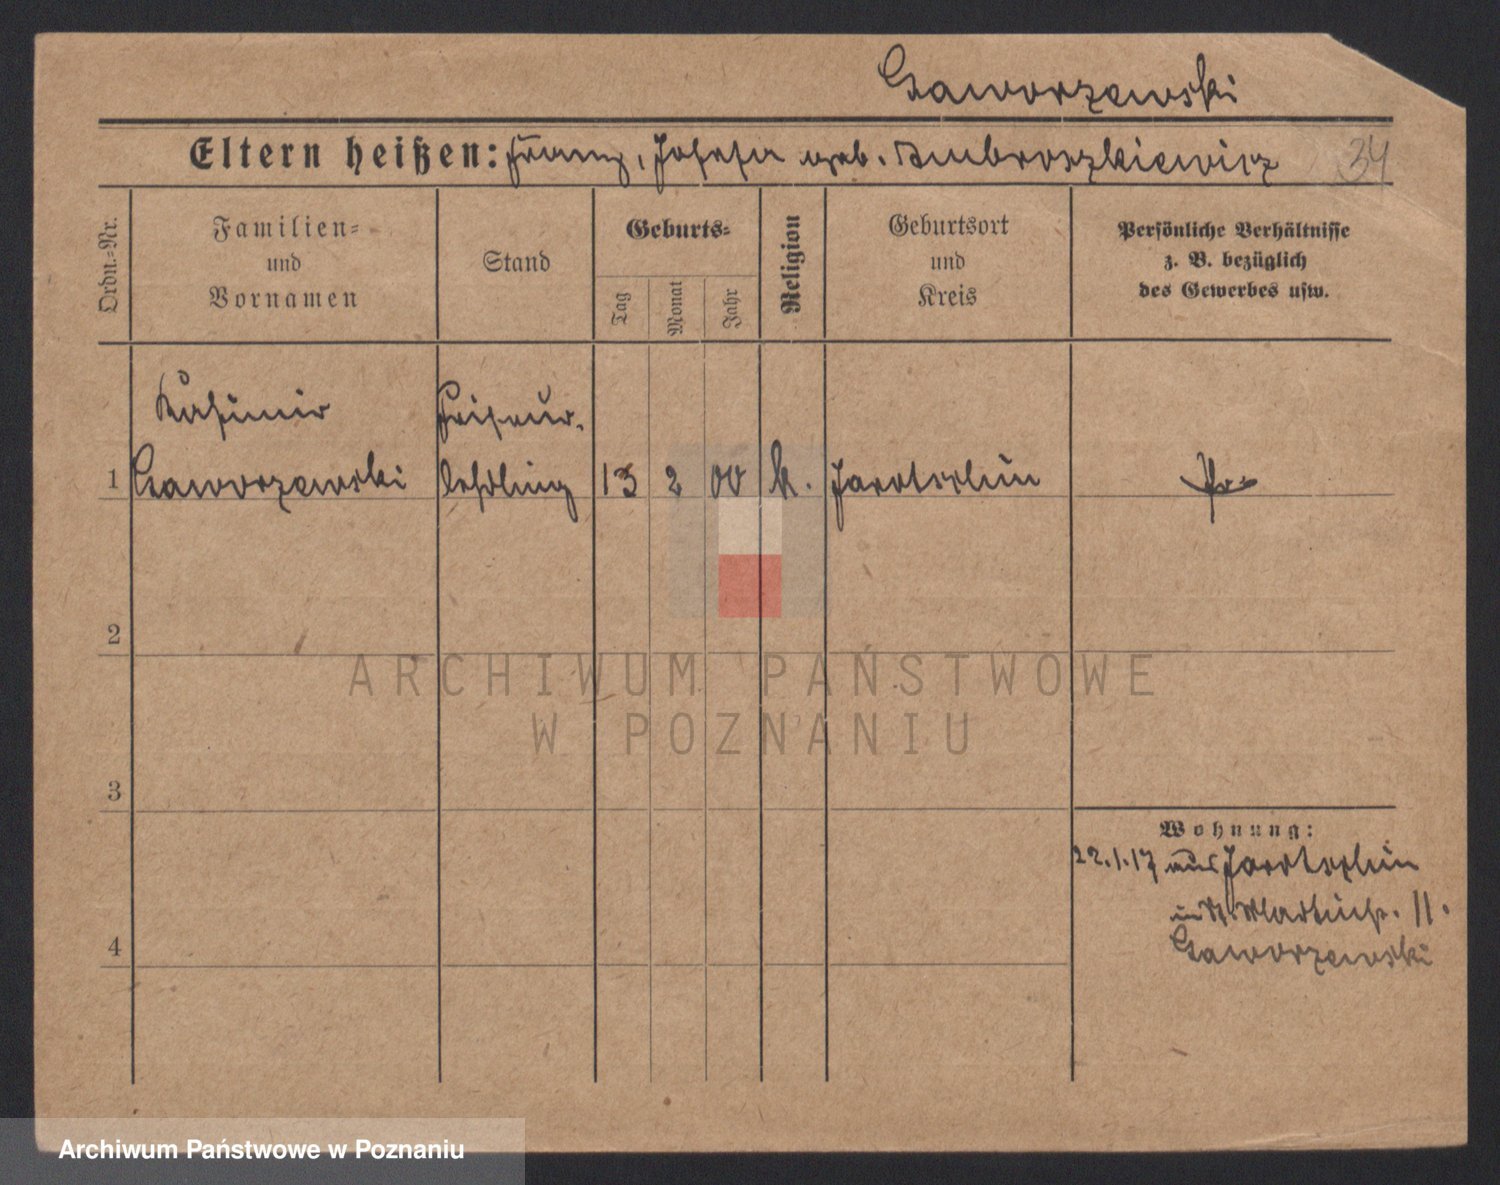 Gaworzewski
Eltern heißen: Franz, Josefa geb. Ambroszkiewicz
34
Ordn.-Nr.
Familien-
und
Vornamen
Stand
Geburts-
Tag
Monat
Jahr
Religion
Geburtsort
und
Kreis
Persönliche Verhältnisse
z. B. bezüglich
des Gewerbes usw.
Kasimir
Friseur-
1 Gaworzewski lehrling 13 2 00 k. Jarotschin Pr.
2
3
4
Wohnung:
22.1.17 aus Jarotschin
11.
Gaworzewski
ARCHIWUM PAŃSTWOWE
W POZNANIU
Archiwum Państwowe w Poznaniu